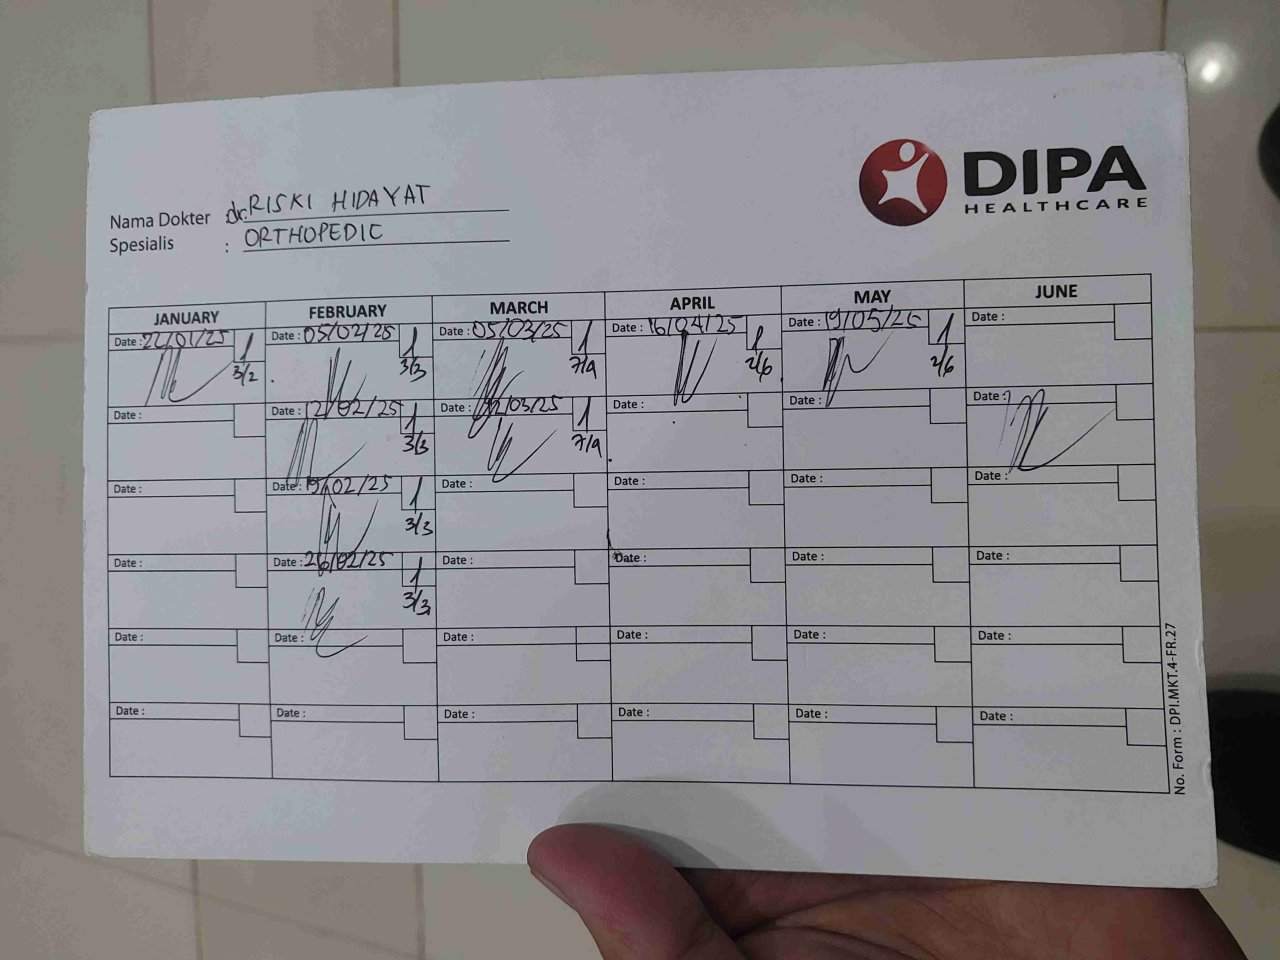 DIPA
HEALTHCARE
Nama Dokter : dr. RISKI HIDAYAT
Spesialis : ORTHOPEDIC
JANUARY FEBRUARY MARCH APRIL MAY JUNE
Date : 22/01/25 1 Date : 05/02/25 1 Date : 05/03/25 1 Date : 16/04/25 1 Date : 19/05/25 1 Date :
3/2 3/3 7/4 2/6 2/6
Date : Date : 12/02/25 1 Date : 12/03/25 1 Date : Date : Date :
3/3 7/4
Date : Date : 19/02/25 1 Date : Date : Date : Date :
3/3
Date : Date : 26/02/25 1 Date : Date : Date : Date :
3/3
Date : Date : Date : Date : Date : Date :
Date : Date : Date : Date : Date : Date :
No. Form : DPI.MKT.4-FR.27